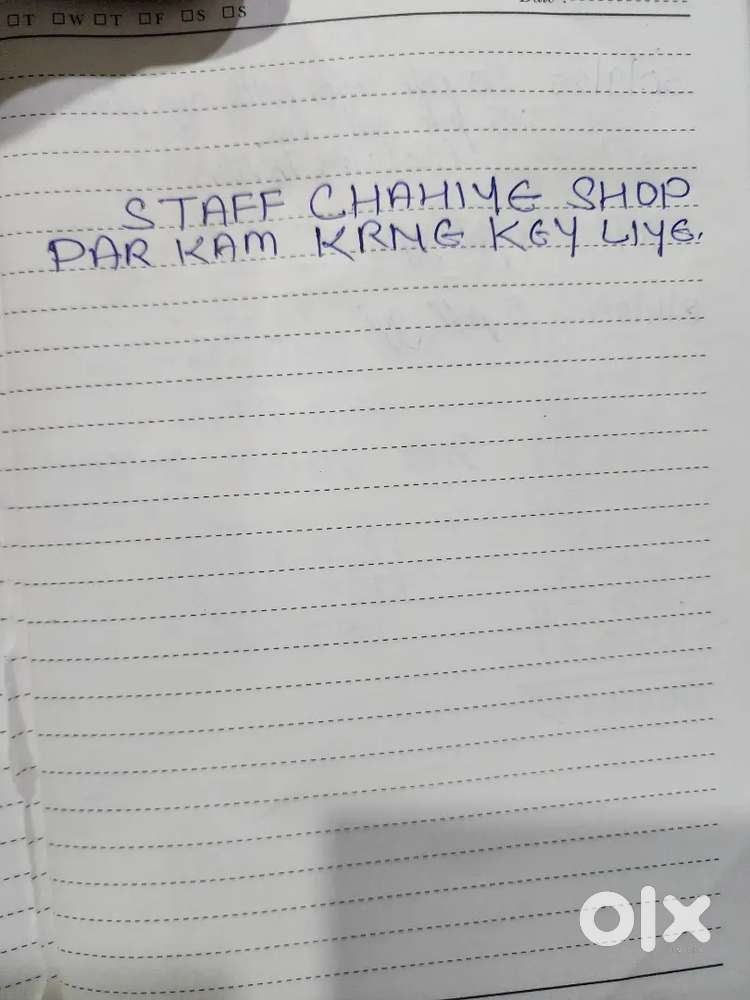 T W T F S S
STAFF CHAHIYE SHOP
PAR KAM KRNE KEY LIYE.
olx